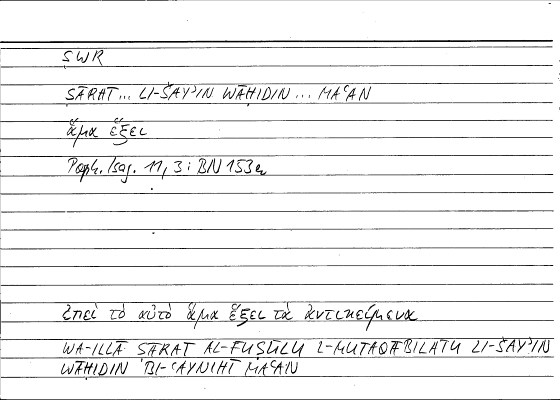 ṢWR
ṢĀRAT... LI-ŠAYʾIN WĀḤIDIN... MAʿAN
ἅμα ἕξει
Porph. Isag. 11, 3 : BN 153a
ἐπεὶ τὸ αὐτὸ ἅμα ἕξει τὰ ἀντικείμενα
WA-ILLĀ ṢĀRAT AL-FUṢŪLU L-MUTAQĀBILATU LI-ŠAYʾIN
WĀḤIDIN BI-ʿAYNIHĪ MAʿAN